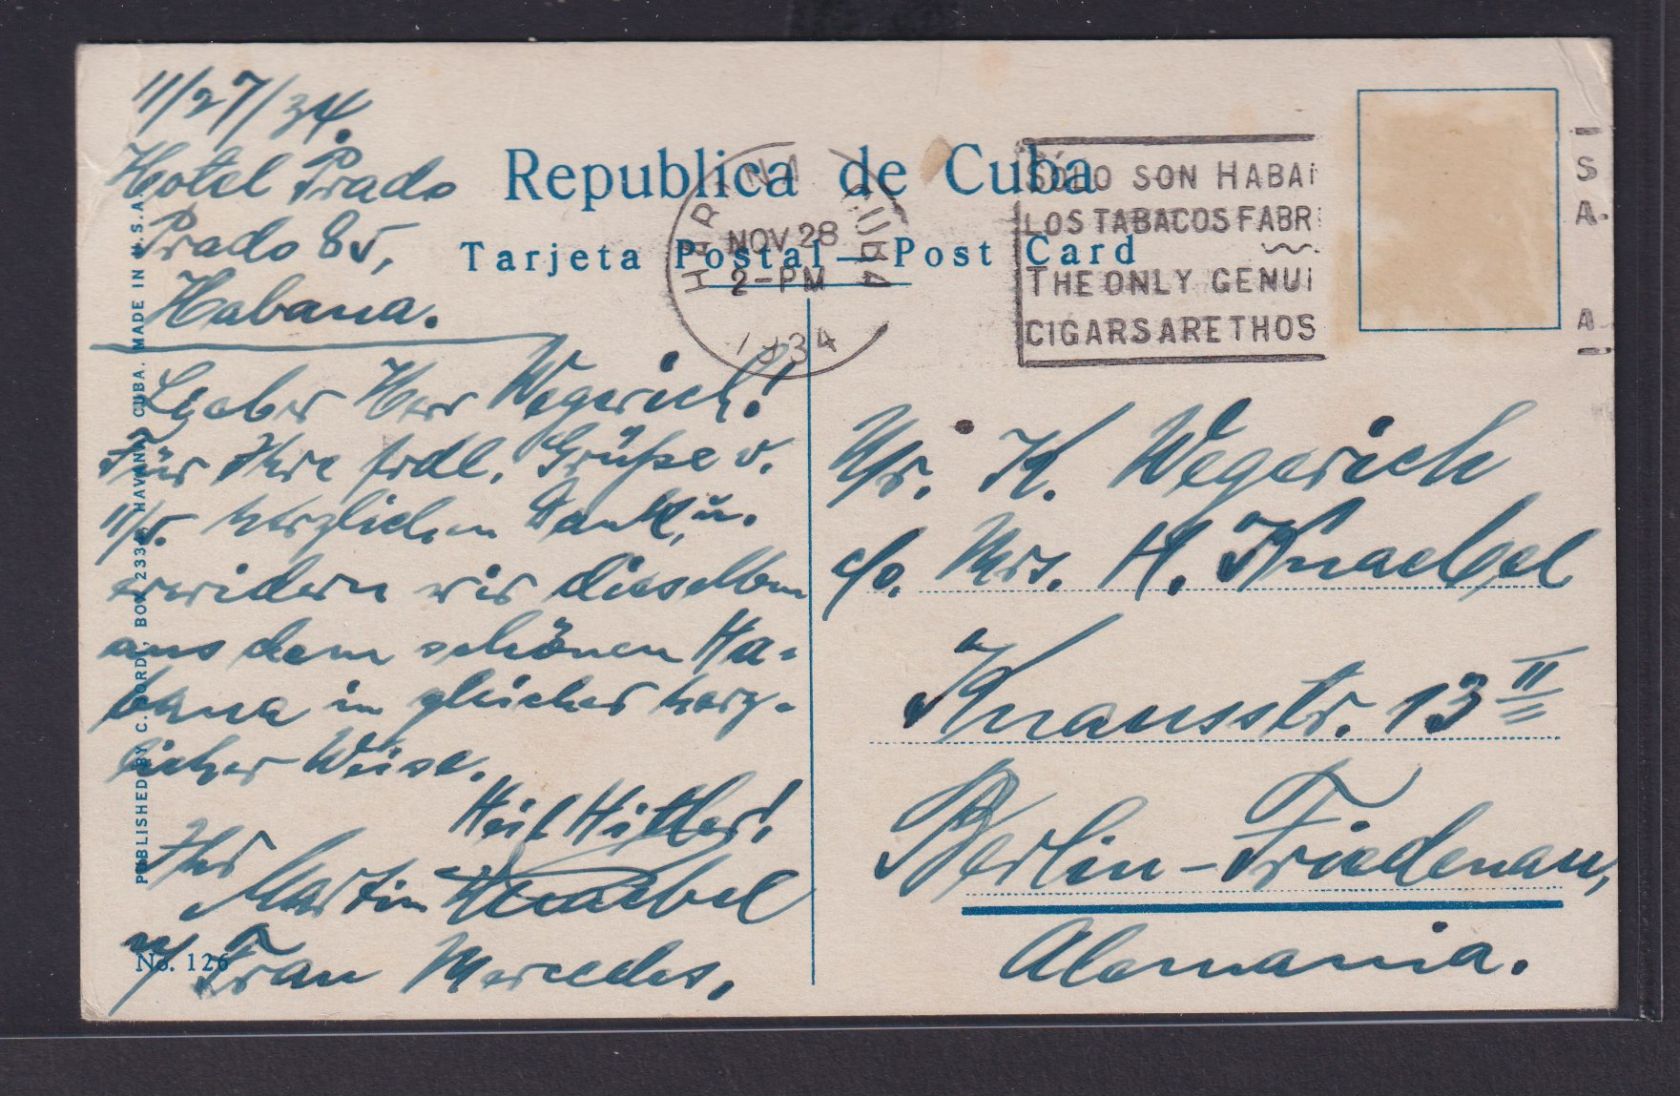 11/27/34.
Hotel Prado
Prado 85,
Habana.
Lieber Herr Wegerich!
Für Ihre frdl. Grüße v.
11/5. herzlichen Dank, u.
erwidern wir dieselben
aus dem schönen Ha-
bana in gleicher herz-
licher Weise.
Heil Hitler!
Ihr
Martin Knaebel
u/ Frau Mercedes.
No. 126
PUBLISHED BY C. JORDI, BOX 2334, HAVANA, CUBA. MADE IN U.S.A.
Republica de Cuba
Tarjeta Postal — Post Card
HABANA CUBA
NOV 28
2-PM
1934
SÓLO SON HABA
LOS TABACOS FABR
THE ONLY GENUI
CIGARS ARE THOS
S
A.
A
Hr. K. Wegerich
c/o. Mrs. H. Knaebel
Knausstr. 13 II
Berlin-Friedenau,
Alemania.